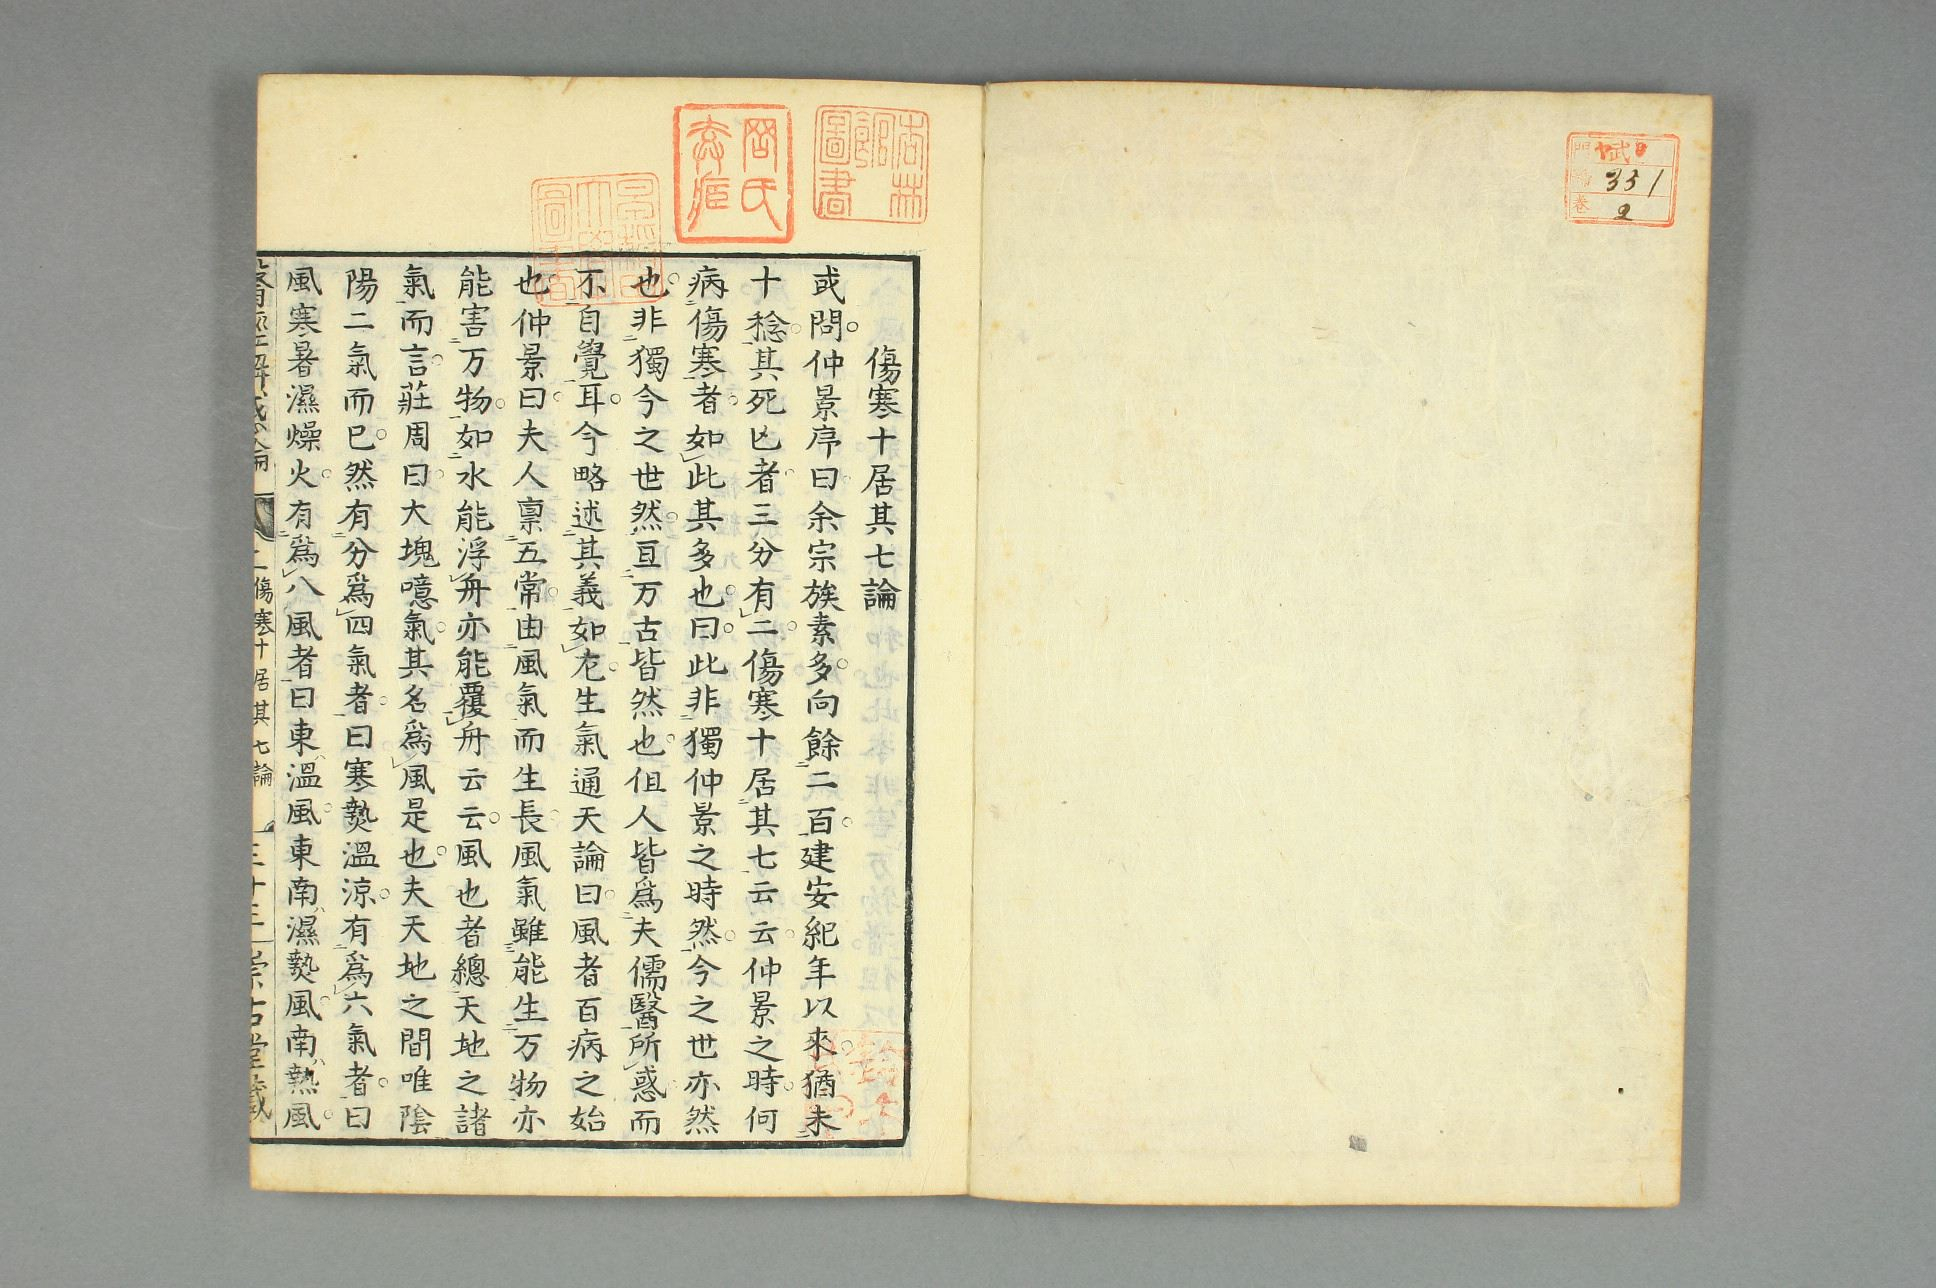 傷寒十居其七論
或問仲景序曰余宗族素多向餘二百建安紀年以來猶未
十稔其死亾者三分有二傷寒十居其七云云仲景之時何
病傷寒者如此其多也曰此非獨仲景之時然今之世亦然
也非獨今之世然亘万古皆然也但人皆爲夫儒醫所惑而
不自覺耳今略述其義如左生氣通天論曰風者百病之始
也仲景曰夫人禀五常由風氣而生長風氣雖能生万物亦
能害万物如水能浮舟亦能覆舟云云風也者總天地之諸
氣而言莊周曰大塊噫氣其名爲風是也夫天地之間唯陰
陽二氣而已然有分爲四氣者曰寒熱溫涼有爲六氣者曰
風寒暑濕燥火有爲八風者曰東溫風東南濕熱風南熱風
二傷寒十居其七論
崇古堂藏
圖書
岡氏
門
武
號
331
卷
2